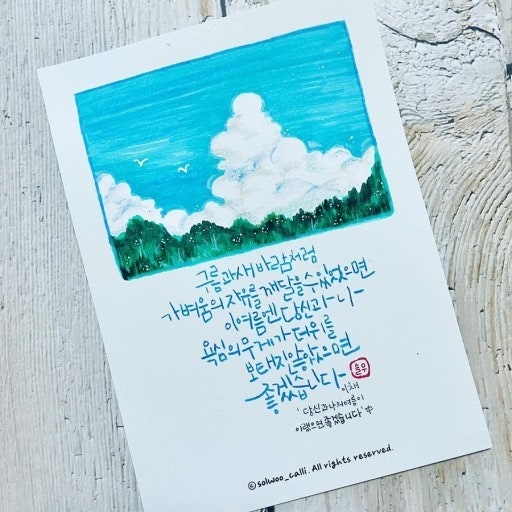 구름과 새 바람처럼
가벼움의 자유를 깨달을 수 있었으면
이 여름엔 당신과 나
욕심의 무게가 더위를
보태지 않았으면
좋겠습니다
이채
'당신과 나의 여름이
이랬으면 좋겠습니다' 中
©solwoo_calli. All rights reserved.